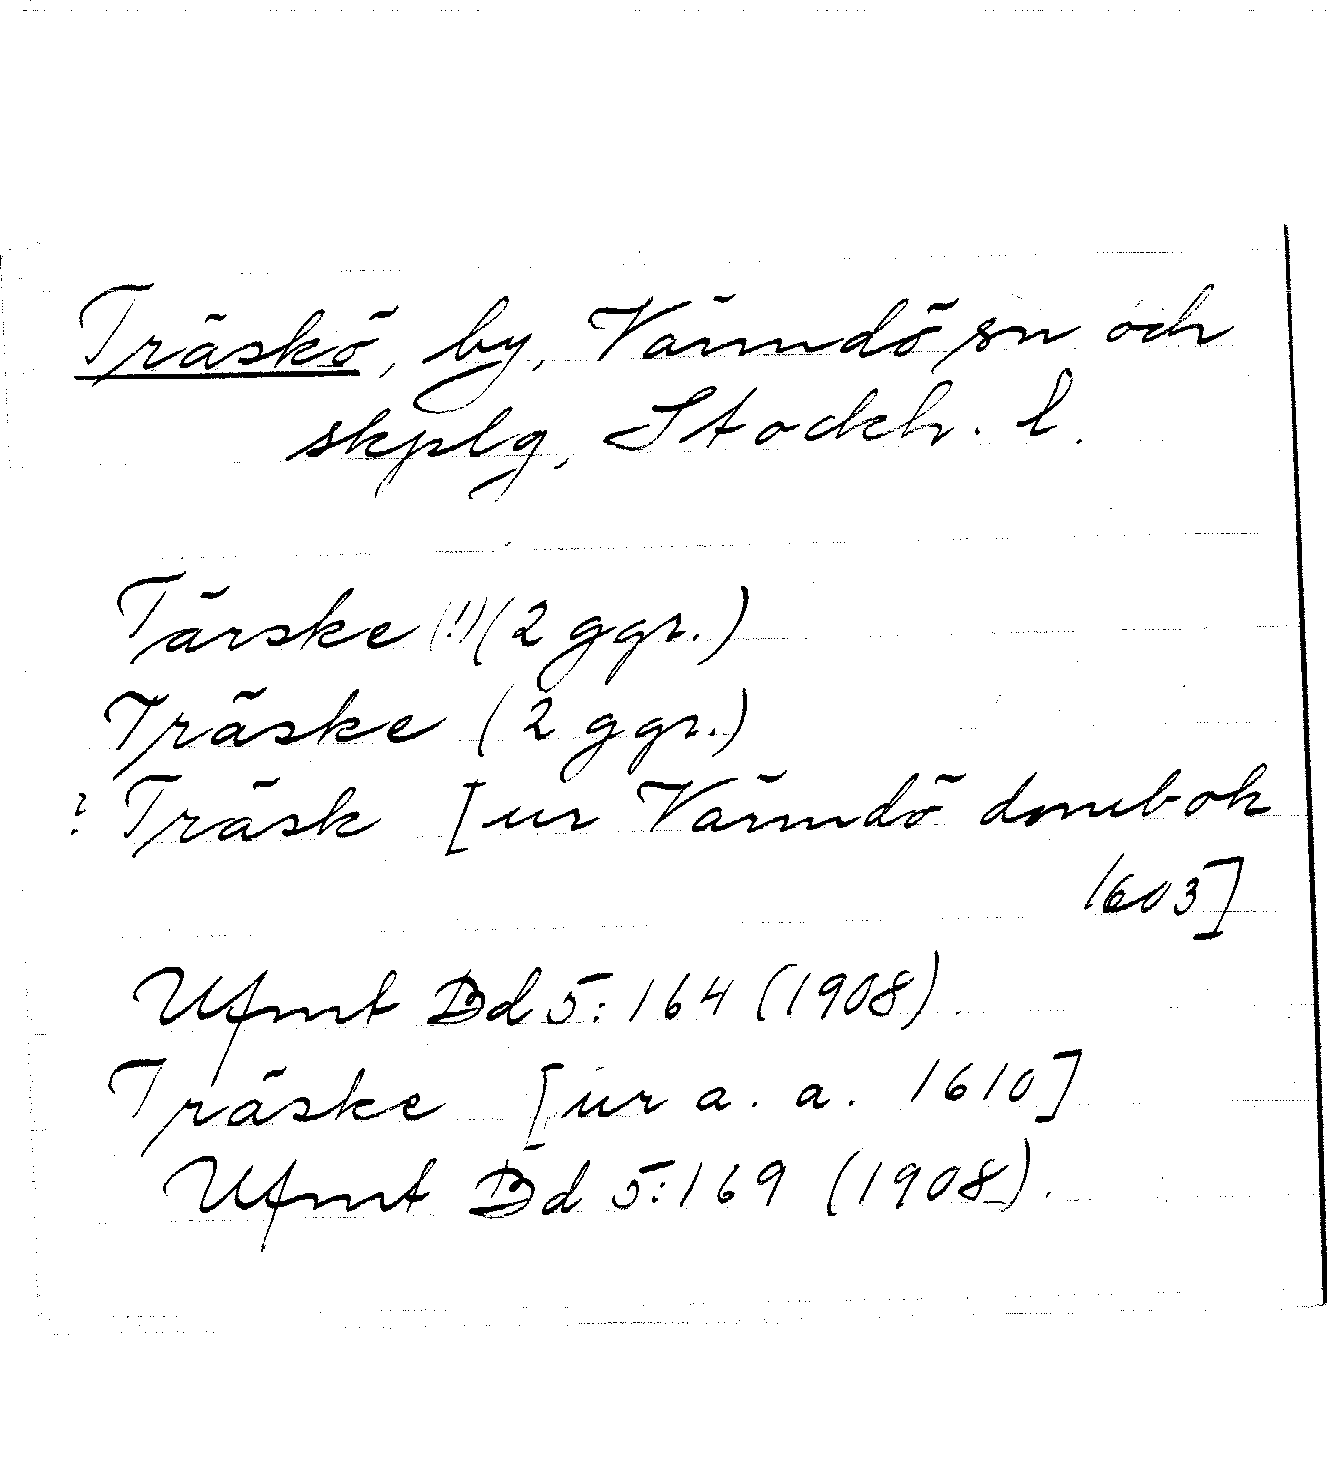 Träskö, by, Värmdö sn och
skplg, Stockh. l.
Tärske (!) (2 ggr.)
Träske (2 ggr.)
? Träsk [ur Värmdö dombok
1603]
Ufmt Bd 5:164 (1908)
Träske [ur a. a. 1610]
Ufmt Bd 5:169 (1908).